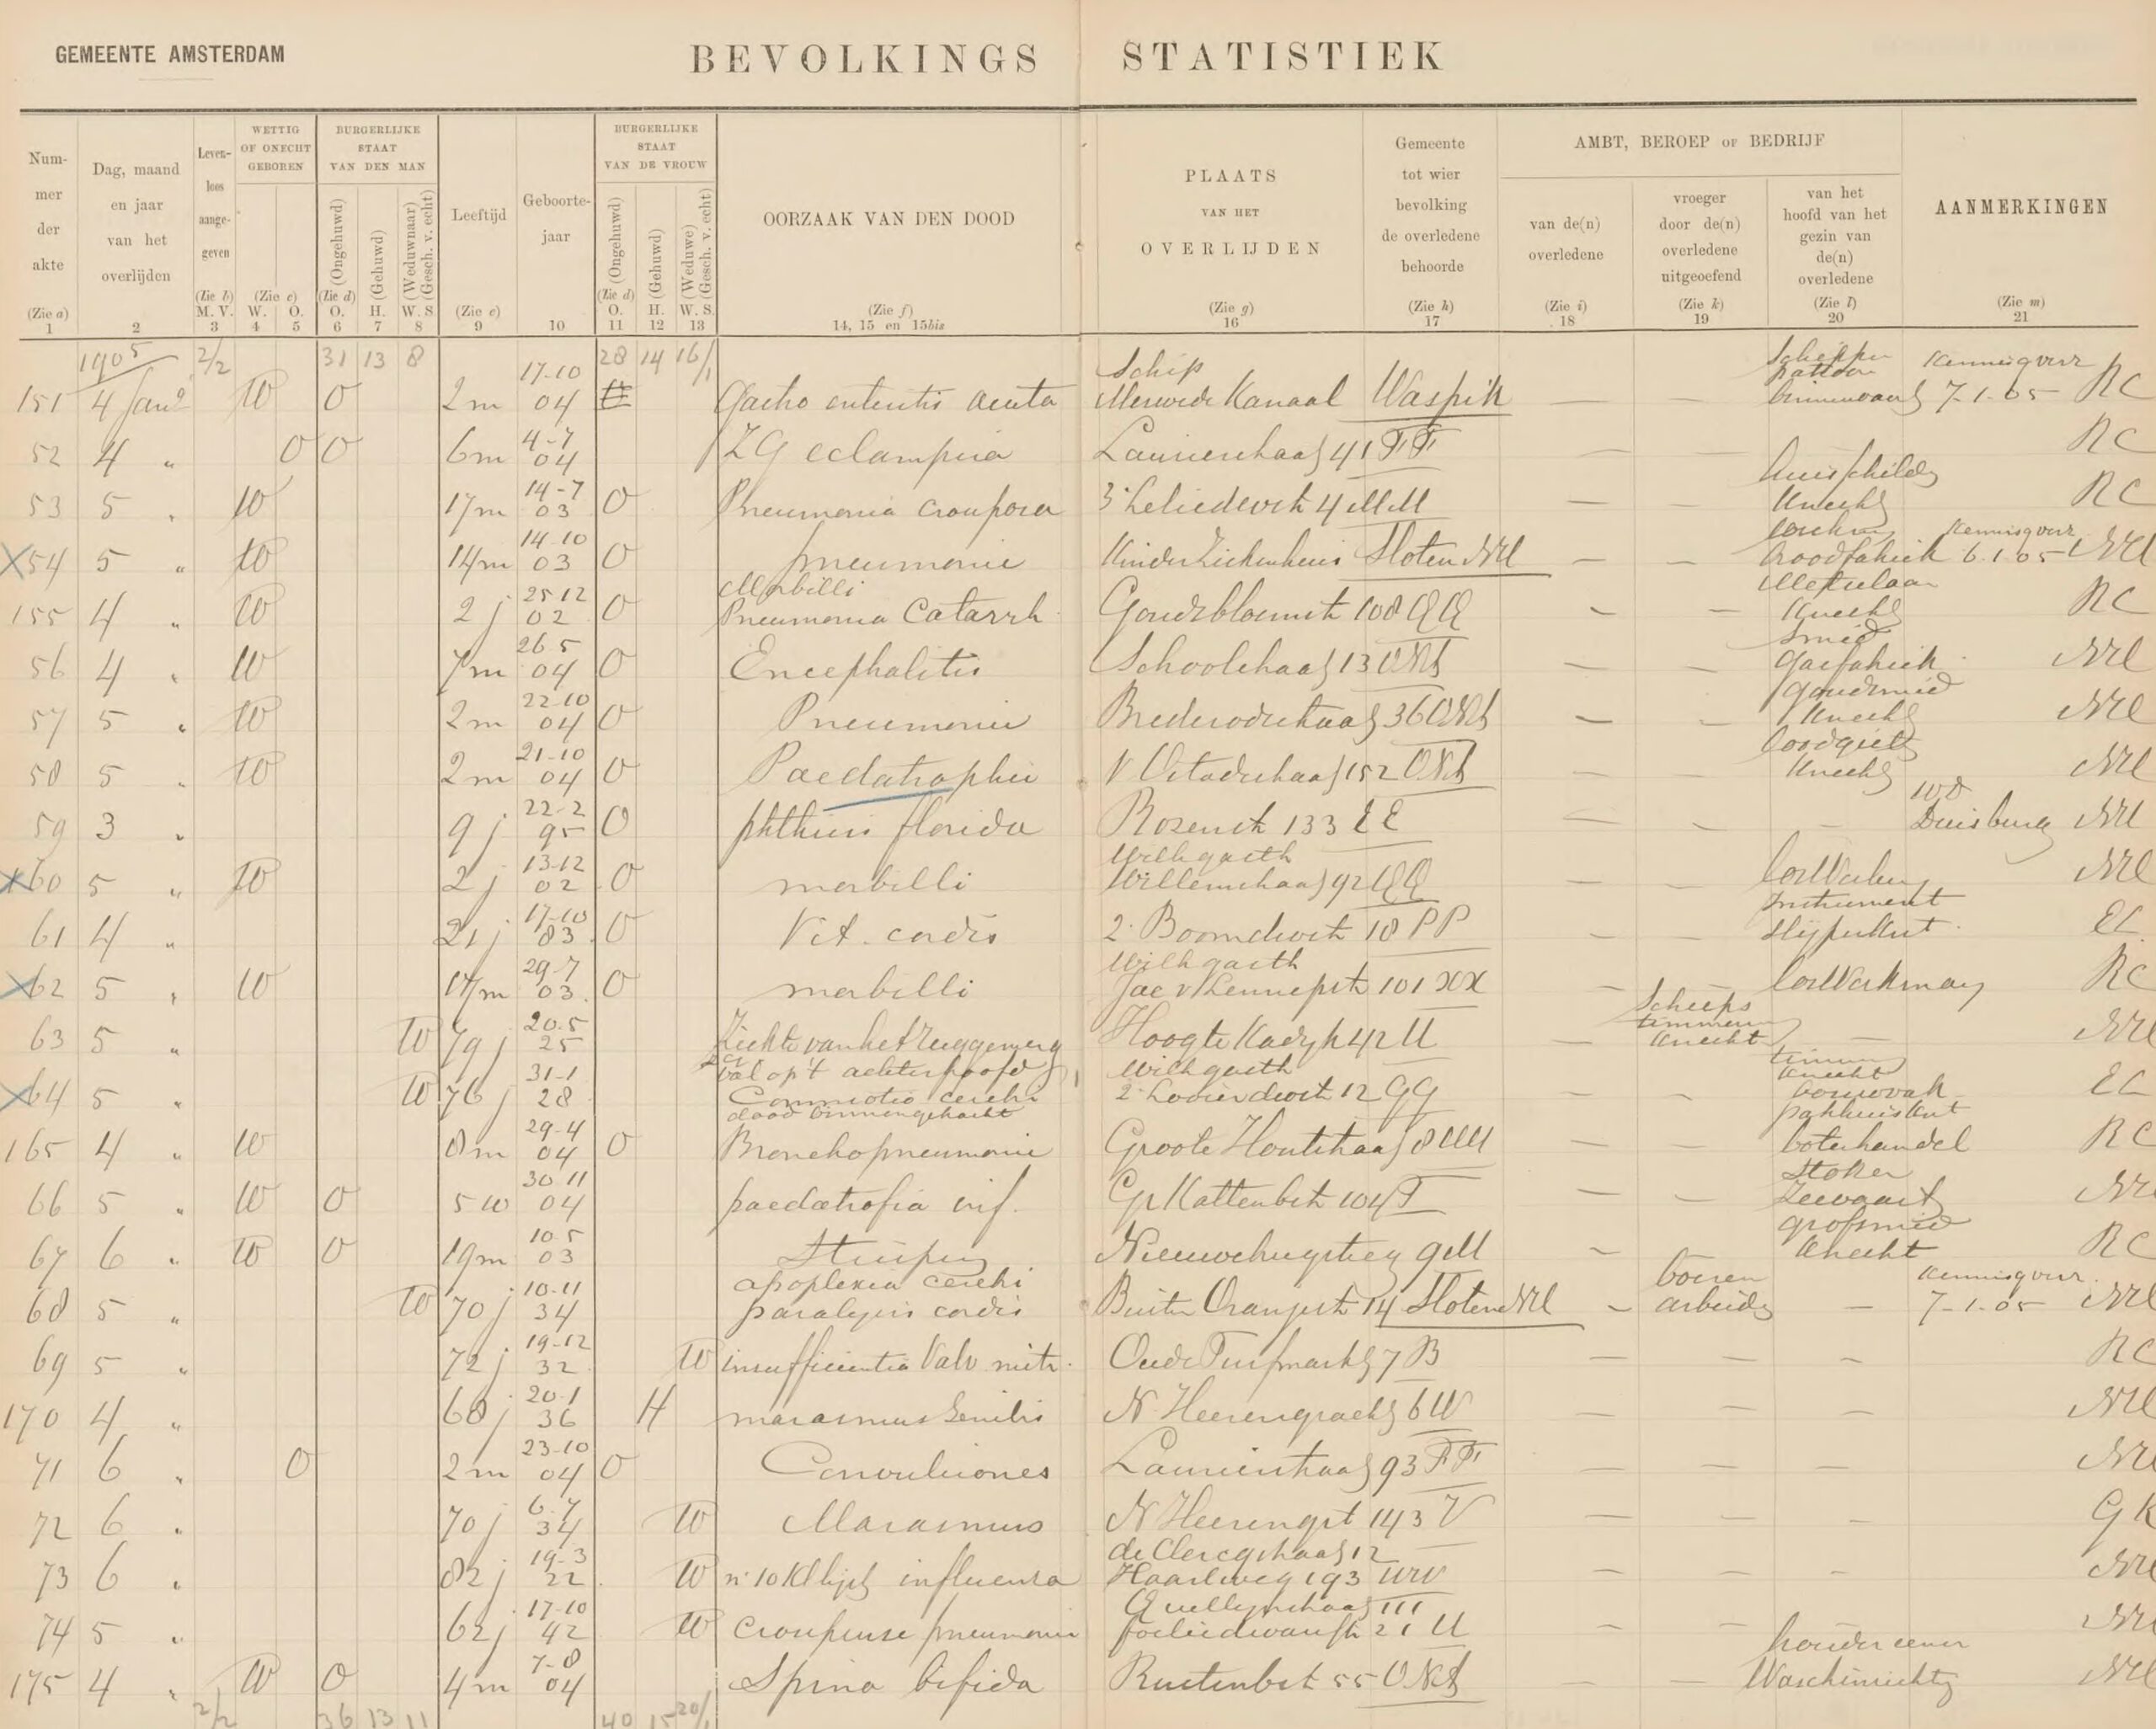 GEMEENTE AMSTERDAM
BEVOLKINGS STATISTIEK
Num- mer der akte (Zie a) 1
Dag, maand en jaar van het overlijden 2
Leven- loos aange- geven (Zie b) M. V. 3
WETTIG OF ONECHT GEBOREN (Zie c) W. O. 4 5
BURGERLIJKE STAAT VAN DEN MAN (Zie d) O. (Ongehuwd) 6 H. (Gehuwd) 7 W. S. (Weduwnaar) (Gesch. v. echt) 8
Leeftijd (Zie e) 9
Geboorte- jaar 10
BURGERLIJKE STAAT VAN DE VROUW (Zie d) O. (Ongehuwd) 11 H. (Gehuwd) 12 W. S. (Weduwe) (Gesch. v. echt) 13
OORZAAK VAN DEN DOOD (Zie f) 14, 15 en 15bis
PLAATS VAN HET OVERLIJDEN (Zie g) 16
Gemeente tot wier bevolking de overledene behoorde (Zie h) 17
AMBT, BEROEP OF BEDRIJF
van de(n) overledene (Zie i) 18
vroeger door de(n) overledene uitgeoefend (Zie k) 19
van het hoofd van het gezin van de(n) overledene (Zie l) 20
AANMERKINGEN (Zie m) 21
1905 2/2 31 13 8 28 14 16/1
151 4 Jan W O 2m 17-10 04 Gastro enteritis acuta Schip Merwede Kanaal Waspik — — 7-1-05 RC
52 4 " O O 6m 4-7 04 ZG eclampsia 41 FF — RC
53 5 " W 17m 14-7 03 O Pneumonia crouposa 4 MM — — huisschilder knecht RC
X54 5 " W 14m 14-10 03 O pneumonie Kinderziekenhuis Sloten NH — — broodfabriek 6-1-05 NH
155 4 " W 2j 25 12 02 O Morbilli Pneumonia Catarrh. Goudsbloemst 108 QQ — — Metselaar knecht RC
56 4 " W 7m 26 5 04 O Encephalitis 13 — — Smid gasfabriek NH
57 5 " W 2m 22-10 04 O Pneumonie 36 — — goudsmid knecht NH
58 5 " W 2m 21-10 04 O Paedatrophie 152 — — loodgieter knecht NH
59 3 " 9j 22-2 95 O phthisis florida Rozenst 133 EE — — — Duisburg NH
X60 5 " W 2j 13-12 02 O morbilli Wilh gasth Willemstraat 92 QQ — — NH
61 4 " 21j 17-10 83 O Vit. cordis 2e Boomdwst 18 PP — — Instrument slijper EL
X62 5 " W 17m 29-7 03 O morbilli Wilh gasth Jac v Lennepst 101 XX — losWerkman RC
63 5 " W 79j 20-5 25 Ziekte van het ruggemerg Hoogte Kadyk 42 U — Scheeps timmerm knecht — NH
X64 5 " W 76j 31-1 28 val op 't achterhoofd Commotio cerebri dood binnengebracht Wilh gasth 12 GG — — timmer knecht bouwvak EL
165 4 " W 8m 29-4 04 O Bronchopneumonie Groote Houtstraat 8 — — pakhuis boterhandel RC
66 5 " W O 5w 30 11 04 paedatrofia inf. Gr Kattenbst 104 T — — Stoker Zeevaart
67 6 " W O 19m 10 5 03 Stuipen 9 M — grofsmid knecht RC
68 5 " W 70j 10-11 34 apoplexia cerebri paralysis cordis Buiten Oranjest 14 Sloten NH — boeren arbeider — 7-1-05 NH
69 5 " 72j 19-12 32 W insufficientia Valv mitr. Oude Turfmarkt 7 B — — — RC
170 4 " 68j 20-1 36 H marasmus Senilis N Heerengracht 6 W — — — NH
71 6 " O 2m 23-10 04 O Convulsiones 93 FF — — —
72 6 " 70j 6-7 34 W Marasmus N Heerengrt 143 V — — — GK
73 6 " 82j 19-3 22 W influenza de Clercqstraat 12 Haarlweg 193 — — —
74 5 " 62j 17-10 42 W croupeuse pneumonie 21 U — —
175 4 " W O 4m 7-8 04 Spina bifida 55 — — houder eener Waschinrichting NH
2/2 36 13 11 40 15 20/1